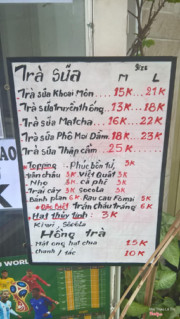 Trà Sữa Size
M L
Trà sữa Khoai Môn 15K 21K
Trà sữa truyền thống 13K 18K
Trà sữa Matcha 16K 22K
Trà sữa Phô Mai Dầm 18K 23K
Trà sữa Thập cẩm 25K
Topping Phúc bồn tử 3K
Trân châu 3K Việt Quất 3K
Nho 3K cà phê 3K
Trái cây 3K socola 3K
Bánh plan 6K Rau cau Fomai 5K
Đặc biệt Trân châu trắng 6K
Hạt thủy tinh: 3K
Kiwi,
Hồng trà
Mật ong hạt chia 15K
chanh / tắc 10K
AO
K
WORLD